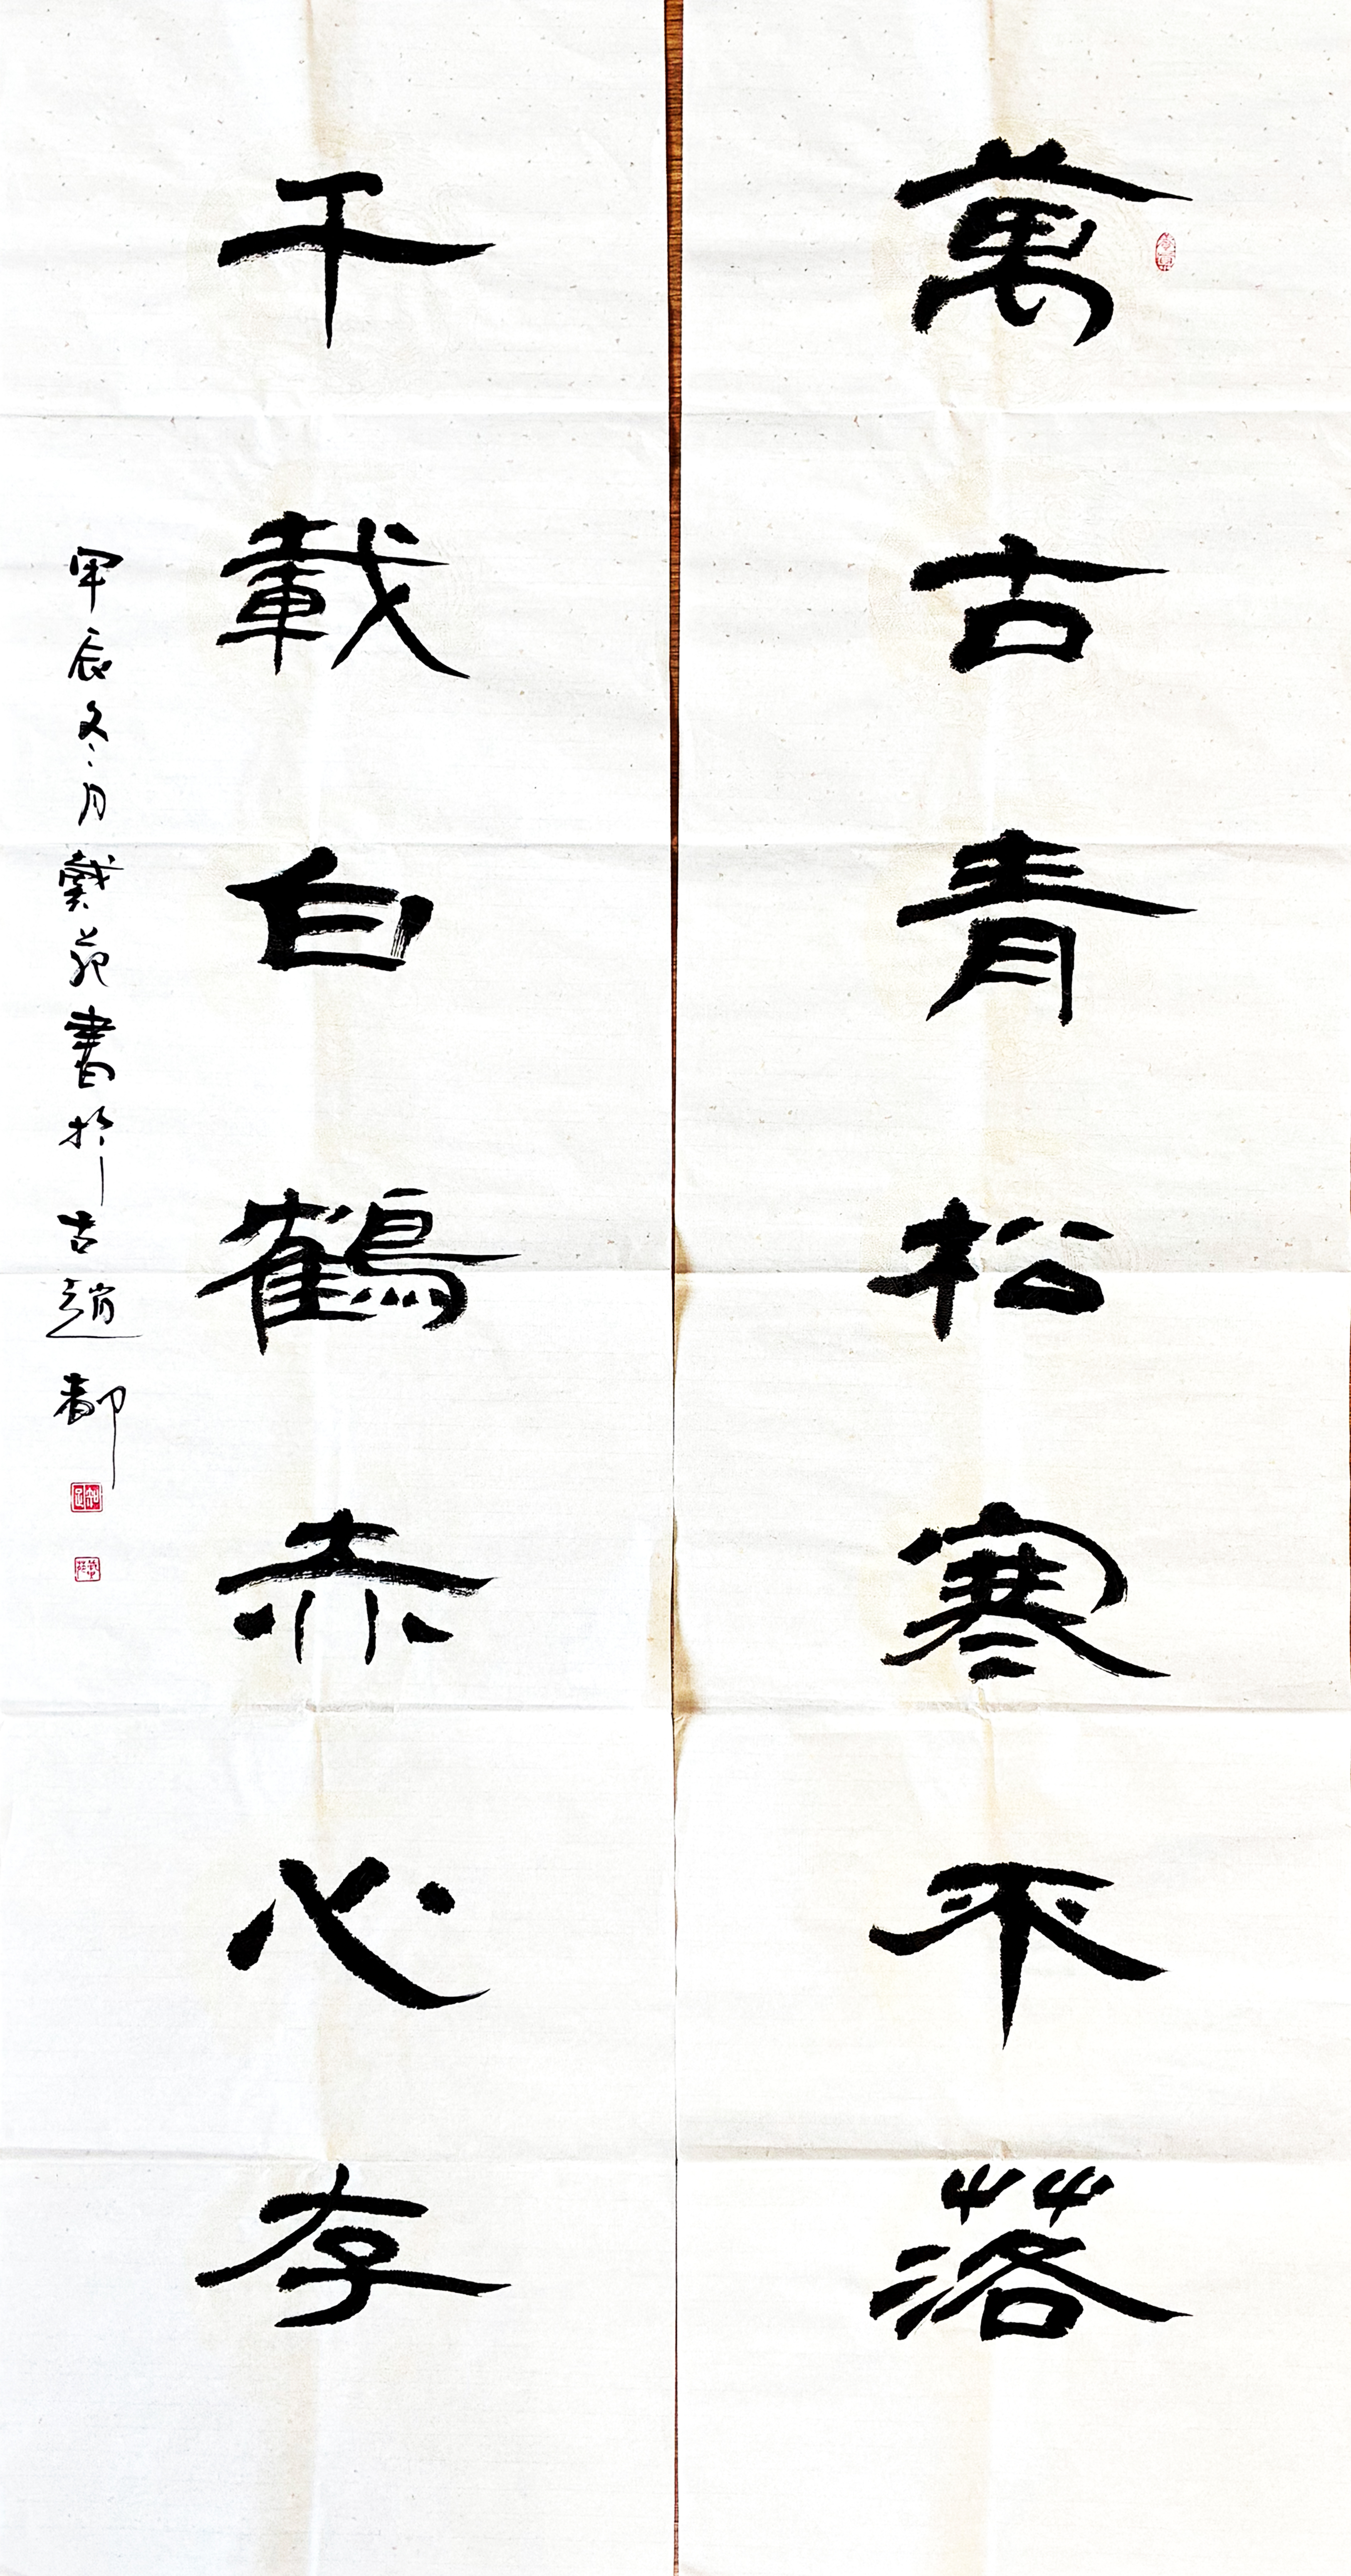 萬古青松寒不落
千載白鶴赤心存
甲辰冬月戴苑書於古趙都